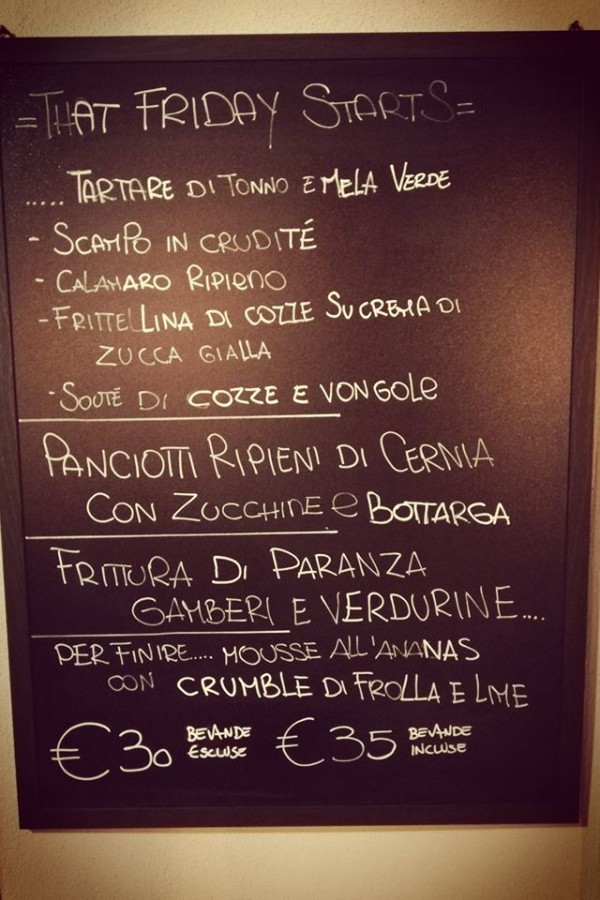 =THAT FRIDAY STARTS=
..... TARTARE DI TONNO E MELA VERDE
- SCAMPO IN CRUDITÉ
- CALAMARO RIPIENO
- FRITTELLINA DI COZZE SU CREMA DI
ZUCCA GIALLA
- SOUTÉ DI COZZE E VONGOLE
PANCIOTTI RIPIENI DI CERNIA
CON ZUCCHINE e BOTTARGA
FRITTURA DI PARANZA
GAMBERI E VERDURINE....
PER FINIRE..... MOUSSE ALL'ANANAS
CON CRUMBLE DI FROLLA E LIME
€30 BEVANDE ESCLUSE €35 BEVANDE INCLUSE